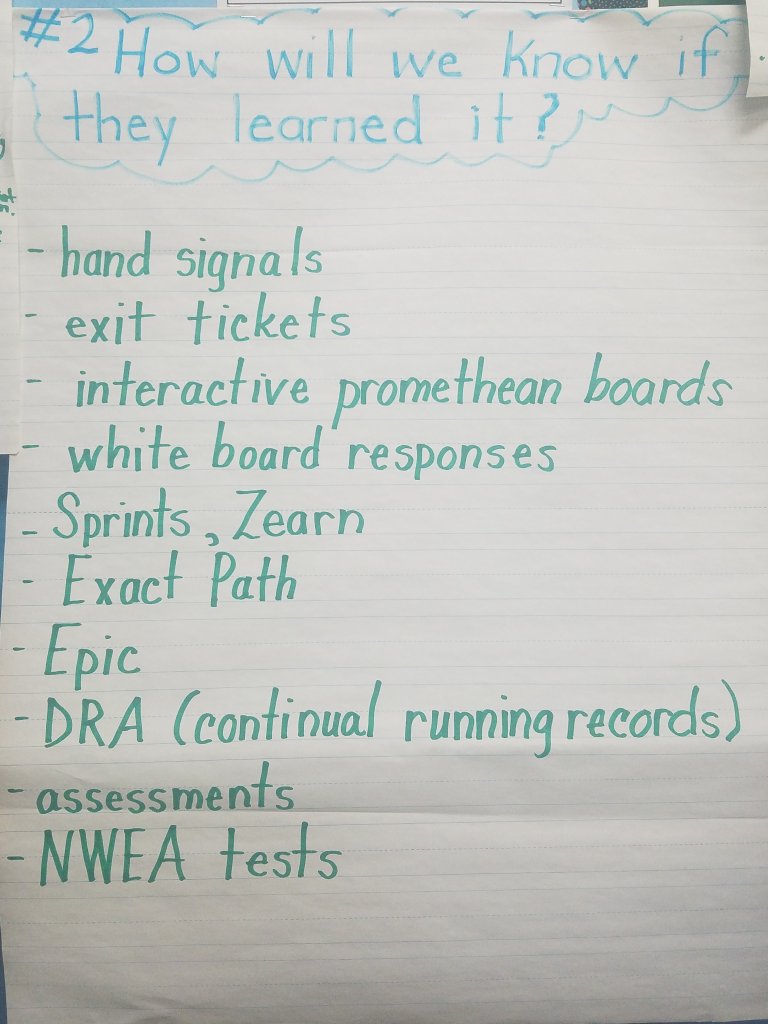 #2 How will we know if
they learned it?
- hand signals
- exit tickets
- interactive promethean boards
- white board responses
- Sprints, Zearn
- Exact Path
- Epic
- DRA (continual running records)
- assessments
- NWEA tests